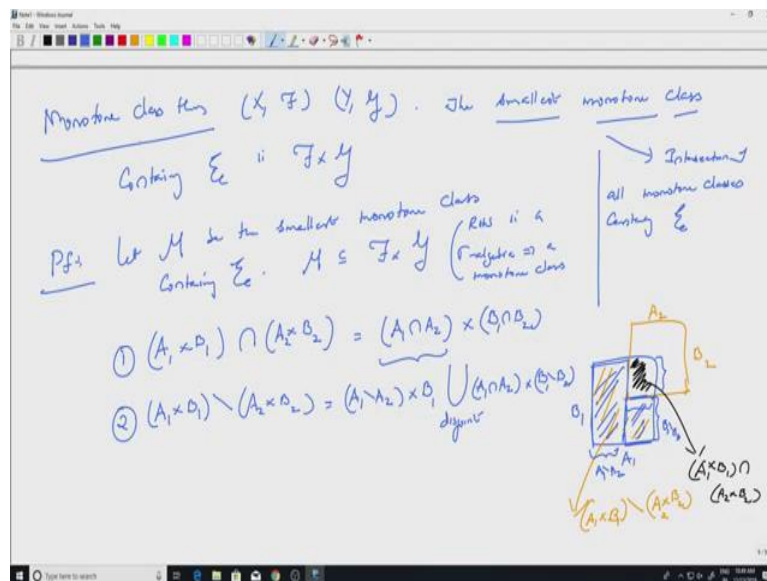 Note1 - Windows Journal
File Edit View Insert Actions Tools Help
Monotone class thm (X, ℱ) (Y, 𝒢). The smallest monotone class
Containing ℰₑ is ℱ × 𝒢
→ Intersection of
all monotone classes
Containing ℰₑ
Pf: Let ℳ be the smallest monotone class
Containing ℰₑ. ℳ ⊆ ℱ × 𝒢 (RHS is a
σ-algebra ⇒ a
monotone class
① (A₁ × B₁) ∩ (A₂ × B₂) = (A₁ ∩ A₂) × (B₁ ∩ B₂)
② (A₁ × B₁) \ (A₂ × B₂) = (A₁ \ A₂) × B₁ ⋃ (A₁ ∩ A₂) × (B₁ \ B₂)
disjoint
A₂
B₂
B₁
B₁\B₂
A₁
A₁\A₂
(A₁ × B₁) ∩
(A₂ × B₂)
(A₁ × B₁) \ (A₂ × B₂)
Type here to search
ENG